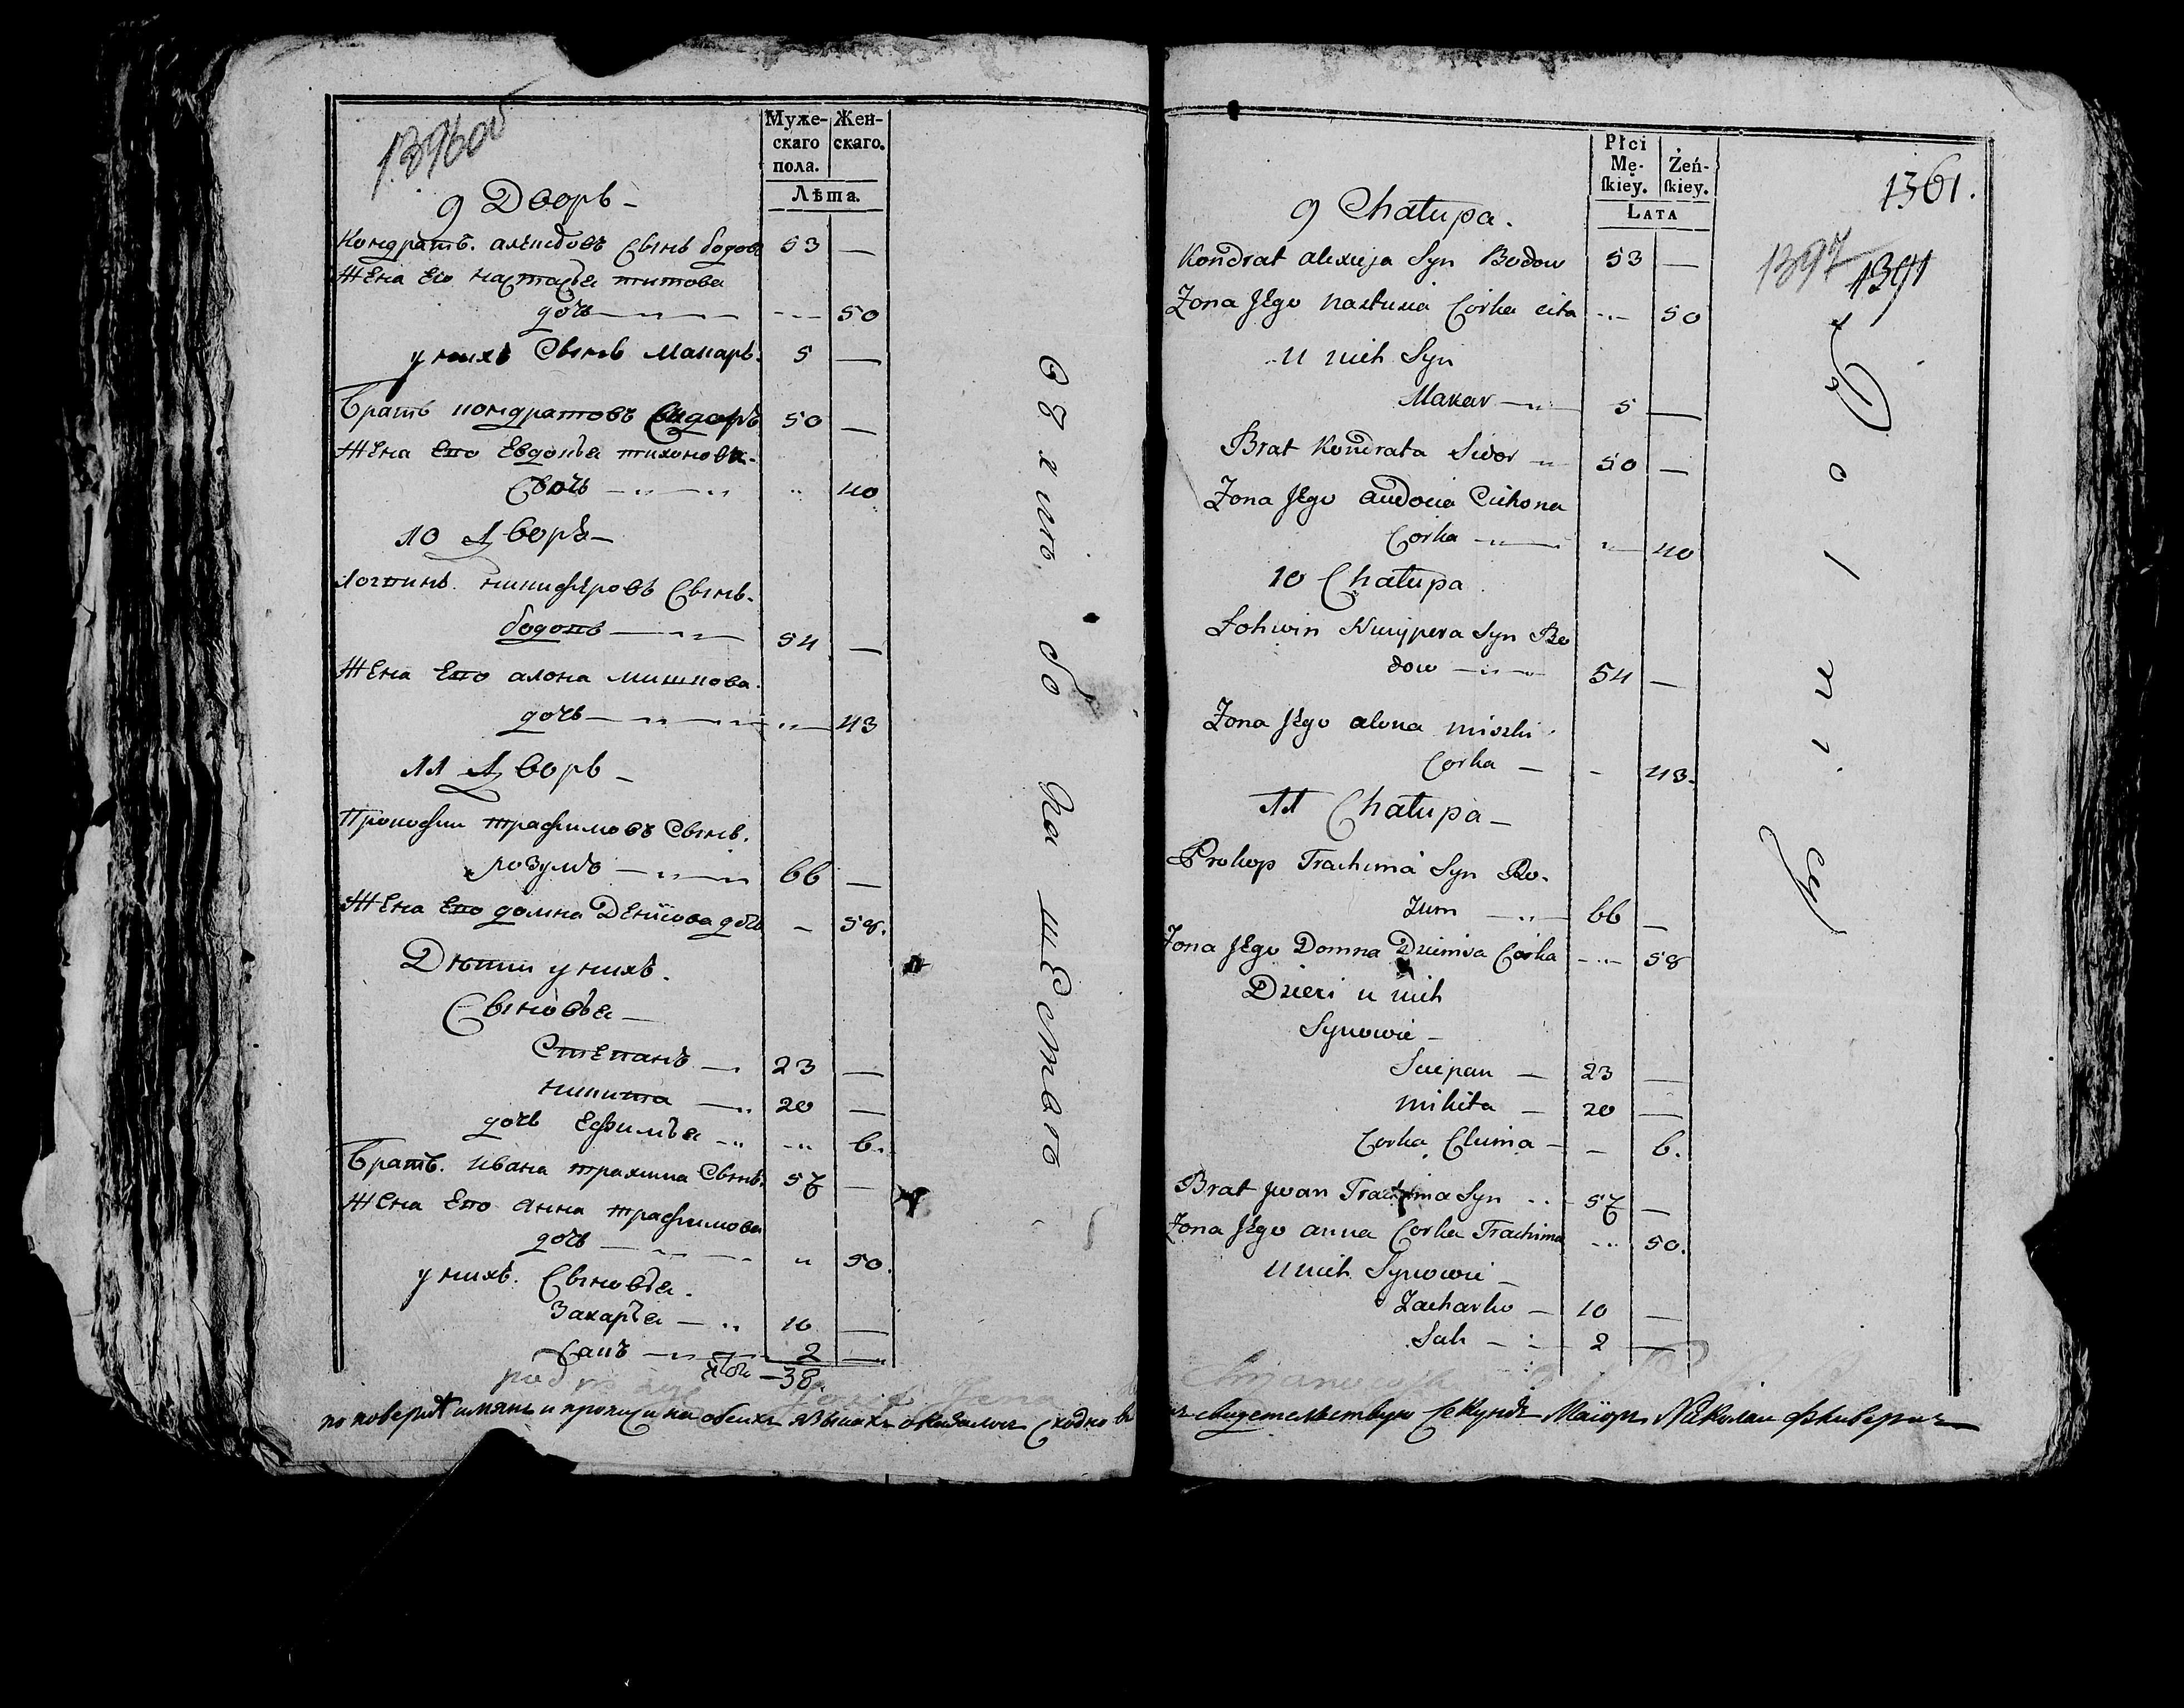 1396об
Муже-
скаго
пола.
Жен-
скаго.
Лѣта.
9 Дворъ -
Кондратъ. алексѣовъ Сынъ бодовъ 53 —
Жена Его настасъя титова
дочь — 50
у нихъ Сынъ Макаръ. 5 —
Братъ кондратовъ Сидоръ 50 —
Жена Его Евдокъя тихонова
дочь — 40
10 Дворъ —
Логвинъ. никифѣровъ Сынъ.
бодовъ — 54 —
Жена Его алона мишкова.
дочь — 43
11 Дворъ —
Прокофии трафимовъ Сынъ.
розумъ — 66 —
Жена Его домна Денисова дочь — 58.
Дѣти у нихъ.
Сыновья —
Степанъ — 23 —
никита — 20 —
дочь Ефимъя — 6.
Братъ. ивана трахима Сынъ. 57 —
Жена Его Анна трафимова
дочь — 50.
у нихъ. Сыновья.
Захаръя — 10 —
Сакъ — 2 —
38
по поверке имянъ и прописи на обеихъ языкахъ оказалось Сходно въ
Płci
Mę-
ſkiey.
Żeń-
ſkiey.
LATA
1361.
1397
1391
9 Chatupa.
Kondrat alexieja Syn Bodow 53 —
Zona Jego nastusia Corka cita 50
u nich Syn
Makar — 5 —
Brat Kondrata Sidor 50 —
Zona Jego audocia Cichona
Corka — 40
10 Chatupa
Lohwin Nicypera Syn Bo
dow — 54 —
Zona Jego alona miszki
Corka — - 43.
11 Chatupa —
Prokop Trachima Syn Ro-
zum — 66 —
Zona Jego Domna Dzienisa Corka — 58
Dzieci u nich
Synowie —
Sciepan — 23 —
mikita — 20 —
Corka, Chima — - 6.
Brat Jwan Trachima Syn 57 —
Zona Jego anna Corka Trachima 50.
u nich Synowie —
Zacharko — 10 —
Sak — 2 —
свидетельствую Секундъ Маіоръ Николаи